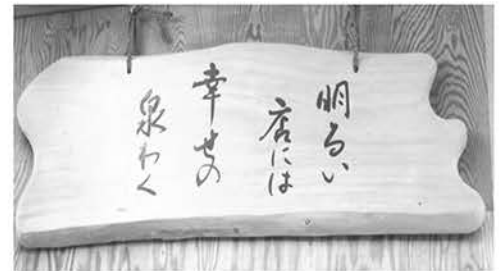 明るい
店には
幸せの
泉わく